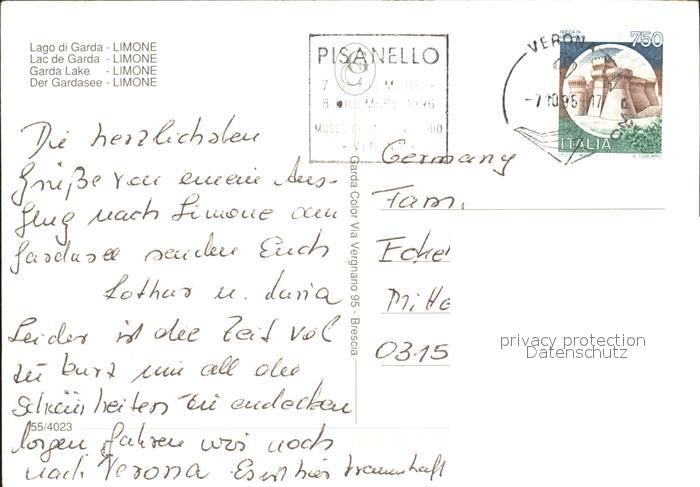 Lago di Garda - LIMONE
Lac de Garda - LIMONE
Garda Lake - LIMONE
Der Gardasee - LIMONE
PISANELLO
8 1996
MUSEO
VERONA
-7.10.96-17
ROCCA DI
750
ITALIA
Die herzlichsten
Grüße von einem Aus-
flug nach Limone am
Gardasee senden Euch
Lothar u.
Leider ist die Zeit viel
zu kurz um all die
Schönheiten zu entdecken
Morgen fahren wir noch
nach Verona Es ist hier traumhaft
55/4023
Garda Color Via Vergnano 95 - Brescia
Germany
Fam.
Ecke
Mitte
0315
privacy protection
Datenschutz